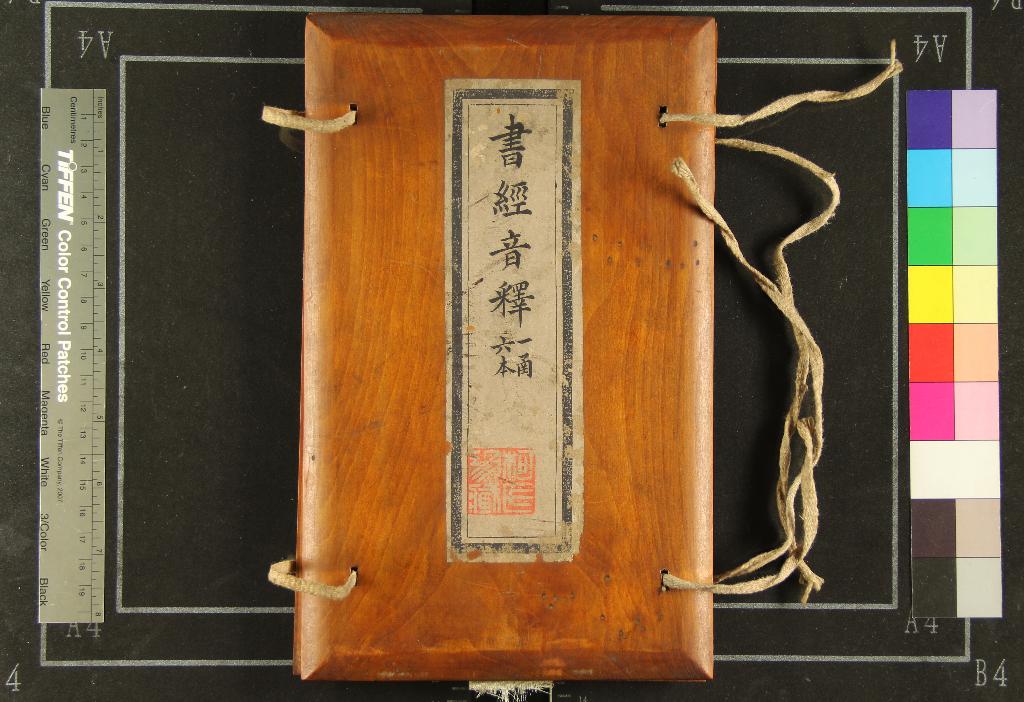 書經音釋
一函
六本
A4
A4
A4
A4
4
B4
Inches
Centimetres
TIFFEN Color Control Patches
© The Tiffen Company, 2007
Blue Cyan Green Yellow Red Magenta White 3/Color Black
1 2 3 4 5 6 7 8
1 2 3 4 5 6 7 8 9 10 11 12 13 14 15 16 17 18 19